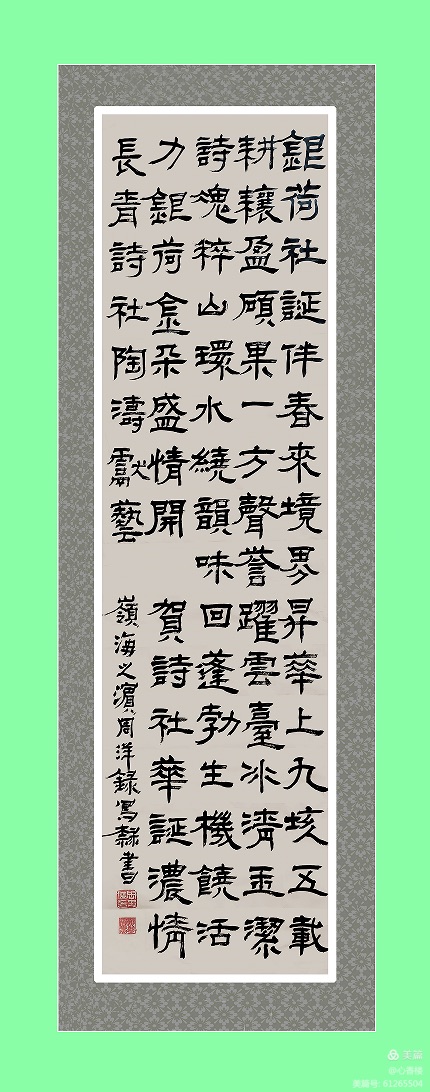 鉅荷社誕伴春來境界昇華上九垓五載
耕穰盈碩果一方聲譽躍雲臺冰清玉潔
詩魂粹山環水繞韻味回蓬勃生機饒活
力鉅荷金朵盛情開 賀詩社華誕濃情
長青詩社陶濤獻藝
嶺海之濱周洋錄寫隸書
美篇
美篇号: 61265504